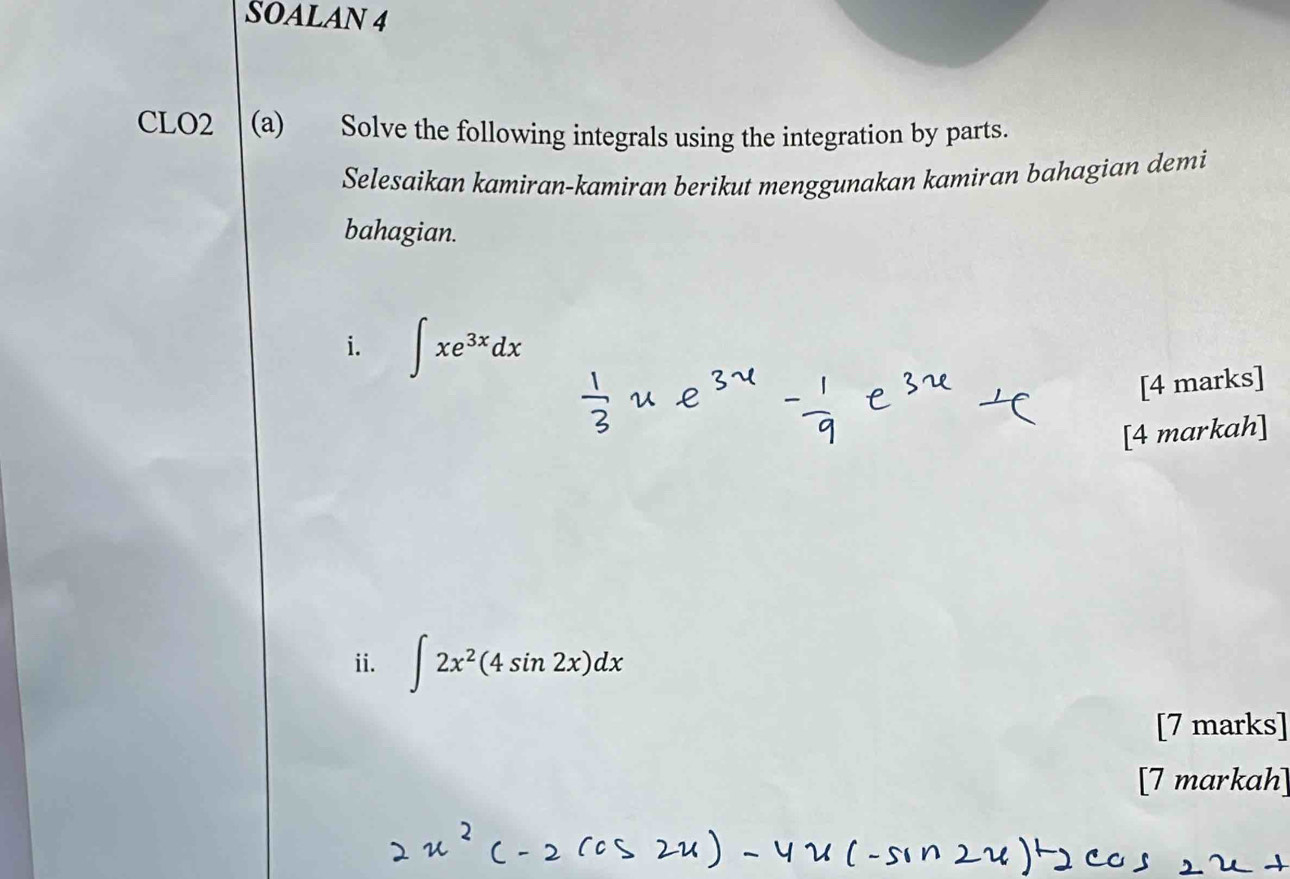 SOALAN 4
CLO2 (a) Solve the following integrals using the integration by parts.
Selesaikan kamiran-kamiran berikut menggunakan kamiran bahagian demi
bahagian.
i. ∫ xe^{3x} dx
1/3 x e^{3x} - 1/9 e^{3x} + c
[4 marks]
[4 markah]
ii. ∫ 2x²(4 sin 2x)dx
[7 marks]
[7 markah]
2x² (-2 cos 2x) - 4x (-sin 2x) + 2 cos 2x +